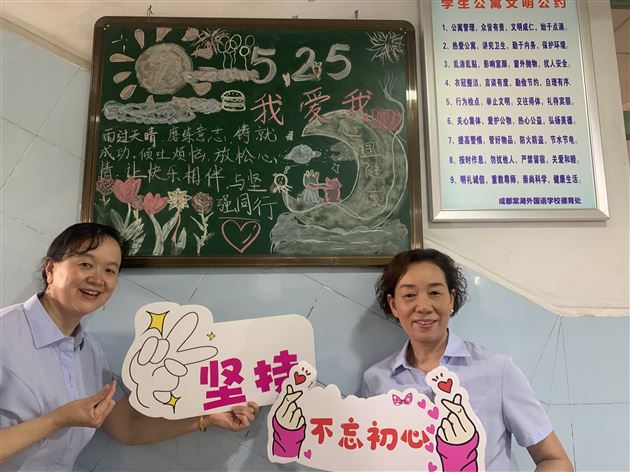 5.25
我爱我
雨过天晴.磨练意志,铸就
成功.倾吐烦恼.放松心
情.让快乐相伴.与坚
强同行
心理健康
学生公寓文明公约
1、公寓管理，众管有责，文明成仁，始于点滴。
2、热爱公寓，讲究卫生，勤于内务，保护环境。
3、乱涂乱贴，影响室颜，窗外抛物，扰人安全。
4、衣冠整洁，言谈有度，勤俭节约，自理有序。
5、行为检点，举止文明，交往得体，礼待宾朋。
6、关心集体，爱护公物，热心公益，弘扬美德。
7、提高警惕，管好物品，防火防盗，节水节电。
8、按时作息，勿扰他人，严禁留宿，关爱和睦。
9、明礼诚信，重教尊师，崇尚科学，健康生活。
成都棠湖外国语学校德育处
坚持
不忘初心